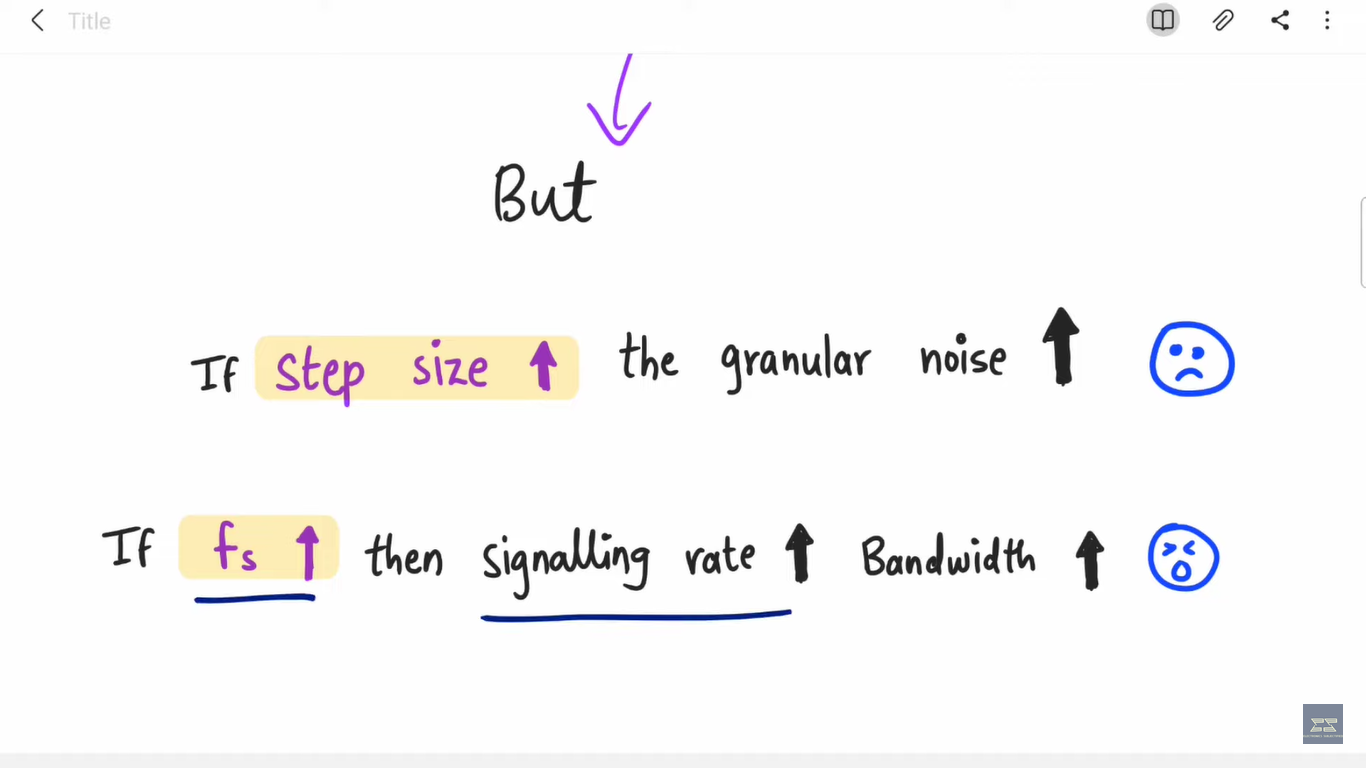 Title
But
If step size ↑ the granular noise ↑
If fs ↑ then signalling rate ↑ Bandwidth ↑